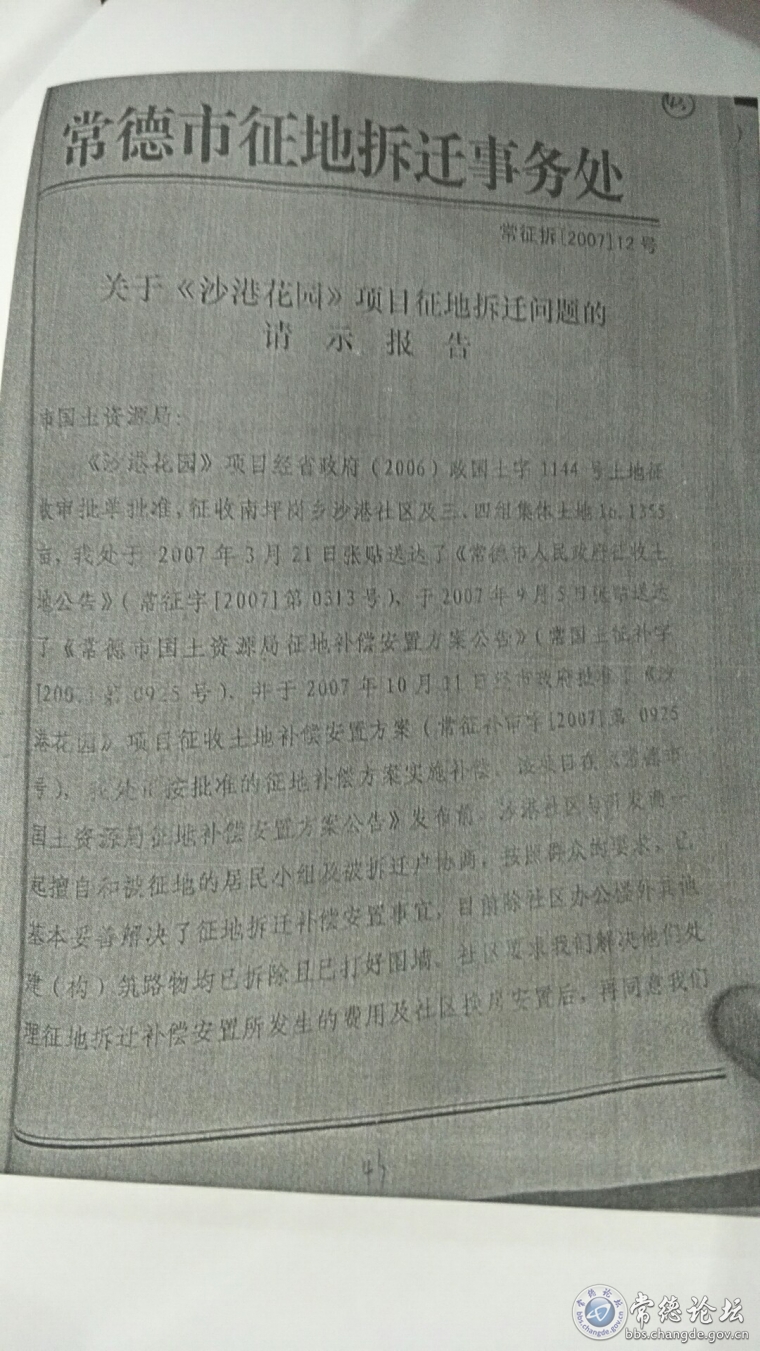 常德市征地拆迁事务处
常征拆[2007]12号
关于《沙港花园》项目征地拆迁问题的
请示报告
市国土资源局：
《沙港花园》项目经省政府（2006）政国土字1144号土地征
收审批单批准，征收南坪岗乡沙港社区及三、四组集体土地16.1355
亩，我处于2007年3月21日张贴送达了《常德市人民政府征收土
地公告》（常征字[2007]第0313号）、于2007年9月5日张贴送达
了《常德市国土资源局征地补偿安置方案公告》（常国土征补字
[200 第0925号）、并于2007年10月11日经市政府批准了《沙
港花园》项目征收土地补偿安置方案（常征补审字[2007]第0925
号），我处 按批准的征地补偿方案实施补偿。该项目在《常德市
国土资源局征地补偿安置方案公告》发布前，沙港社区与开发商一
起擅自和被征地的居民小组及被拆迁户协商，按照群众的要求，已
基本妥善解决了征地拆迁补偿安置事宜，目前除社区办公楼外其他
建（构）筑路物均已拆除且已打好围墙。社区要求我们解决他们处
理征地拆迁补偿安置所发生的费用及社区 安置后，再同意我们
43
常德论坛
bbs.changde.gov.cn